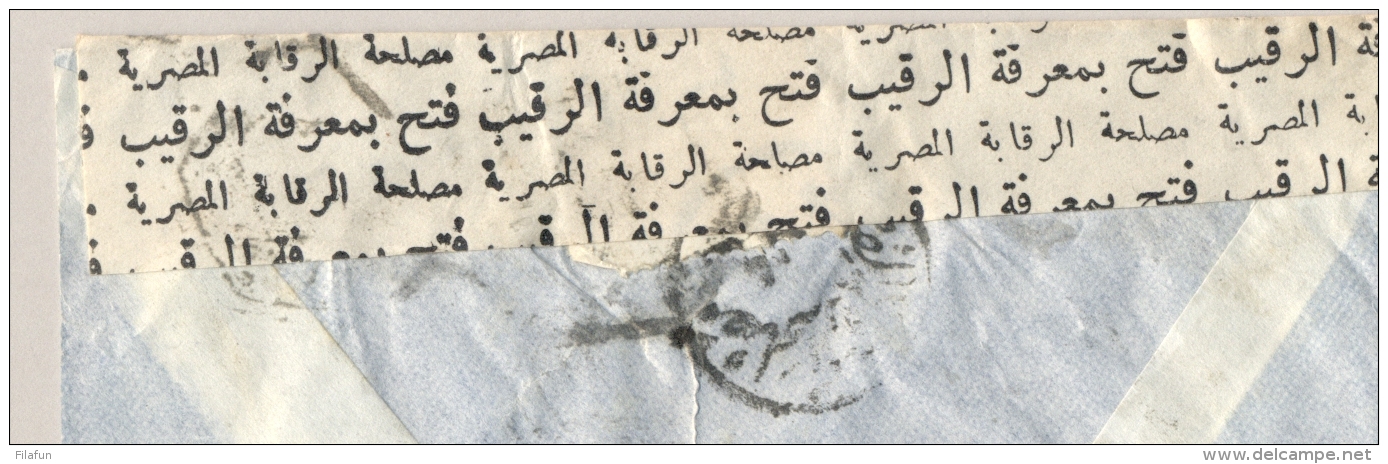 المصرية مصلحة الرقابة المصرية مصلحة الرقابة المصرية
الرقيب فتح بمعرفة الرقيب فتح بمعرفة الرقيب فتح بمعرفة الرقيب
المصرية مصلحة الرقابة المصرية مصلحة الرقابة المصرية مصلحة الرقابة المصرية
فتح بمعرفة الرقيب فتح بمعرفة الرقيب فتح بمعرفة الرقيب
Filafun
www.delcampe.net